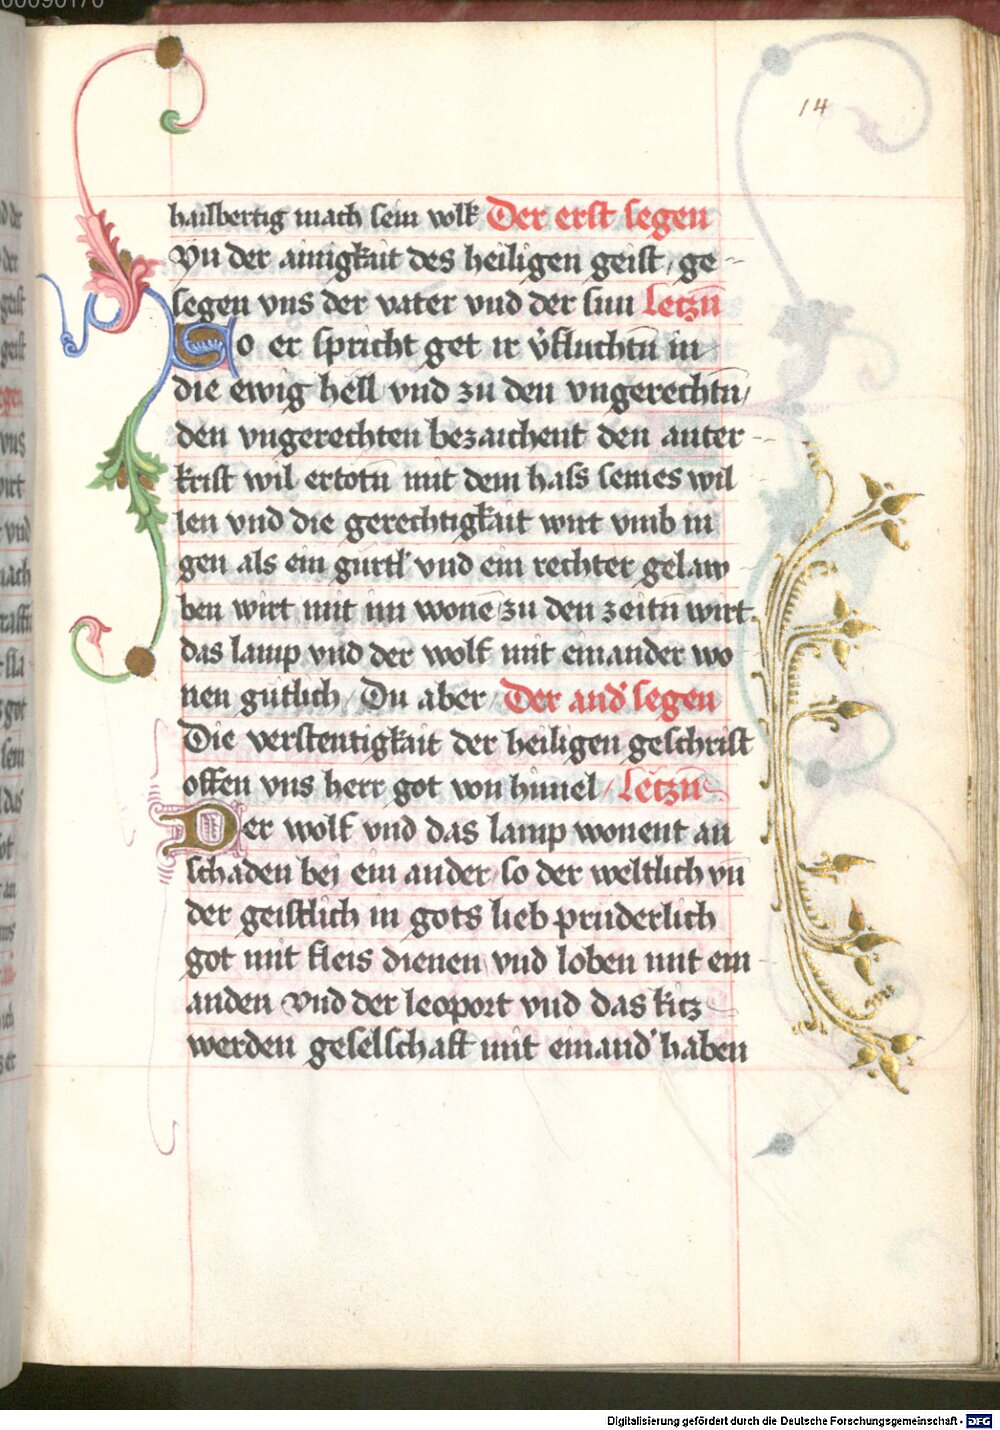 00090170
14
hailbertig mach sein volk Der erst segen
Vn der ainigkait des heiligen geist / ge-
segen vns der vater vnd der sun Letzn̄
So er spricht get ir v̊fluchtn̄ in
die ewig hell vnd zu den vngerechtn̄/
den vngerechten bezaichent den anter-
krist wil ertotn̄ mit dem hass seines wil
len vnd die gerechtigkait wirt vmb in
gen als ein gürtl vnd ein rechter gelaw
ben wirt mit im wone zu den zeitn̄ wirt
das lamp vnd der wolf mit einander wo
nen gütlich / Du aber / Der and' segen
Die verstentigkait der heiligen geschrift
offen vns herr got von himel / Letzn̄
Der wolf vnd das lamp wonent an
schaden bei ein ander / so der weltlich vn̄
der geistlich in gots lieb prüderlich
got mit fleis dienen vnd loben mit ein-
anden Vnd der leoport vnd das kitz
werden geselschaft mit einand' haben
Digitalisierung gefördert durch die Deutsche Forschungsgemeinschaft - DFG